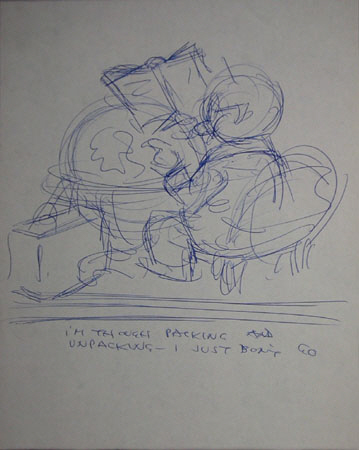 I'M THOUGH PACKING AND
UNPACKING — I JUST DON'T GO